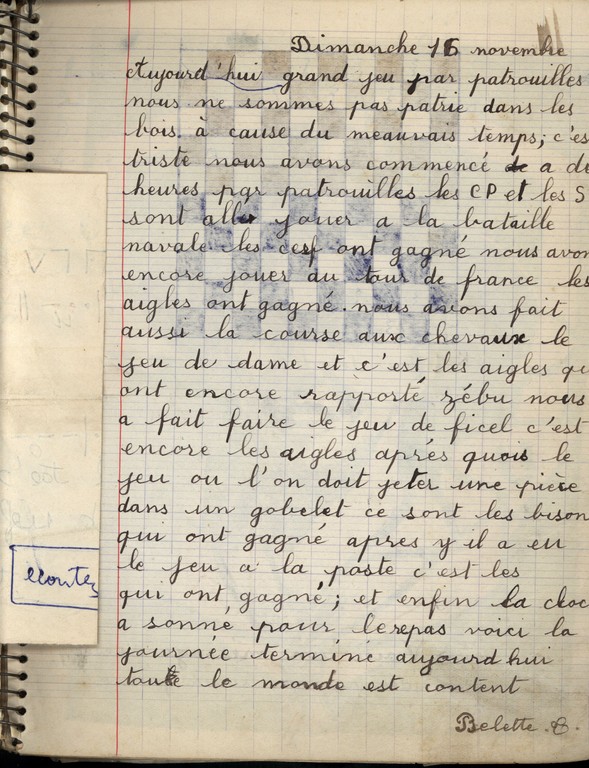 Dimanche 16 novembre
Aujourd'hui grand jeu par patrouilles
nous ne sommes pas patrie dans les
bois. à cause du meauvais temps; c'es
triste nous avons commencé a de
heures par patrouilles les CP et les S
sont allér jouer a la bataille
navale les cerf ont gagné nous avon
encore jouer au tour de france les
aigles ont gagné. nous avons fait
aussi la course aux chevaux le
jeu de dame et c'est les aigles qu
ont encore rapporté zébu nous
a fait faire le jeu de ficel c'est
encore les aigles aprés quois le
jeu ou l'on doit jeter une pièce
dans un gobelet ce sont les bison
qui ont gagné apres y il a eu
le jeu a la poste c'est les
qui ont gagné; et enfin la cloc
a sonné pour lerepas voici la
journée terminé aujourd hui
toute le monde est content
Belette. C.
ecoutez